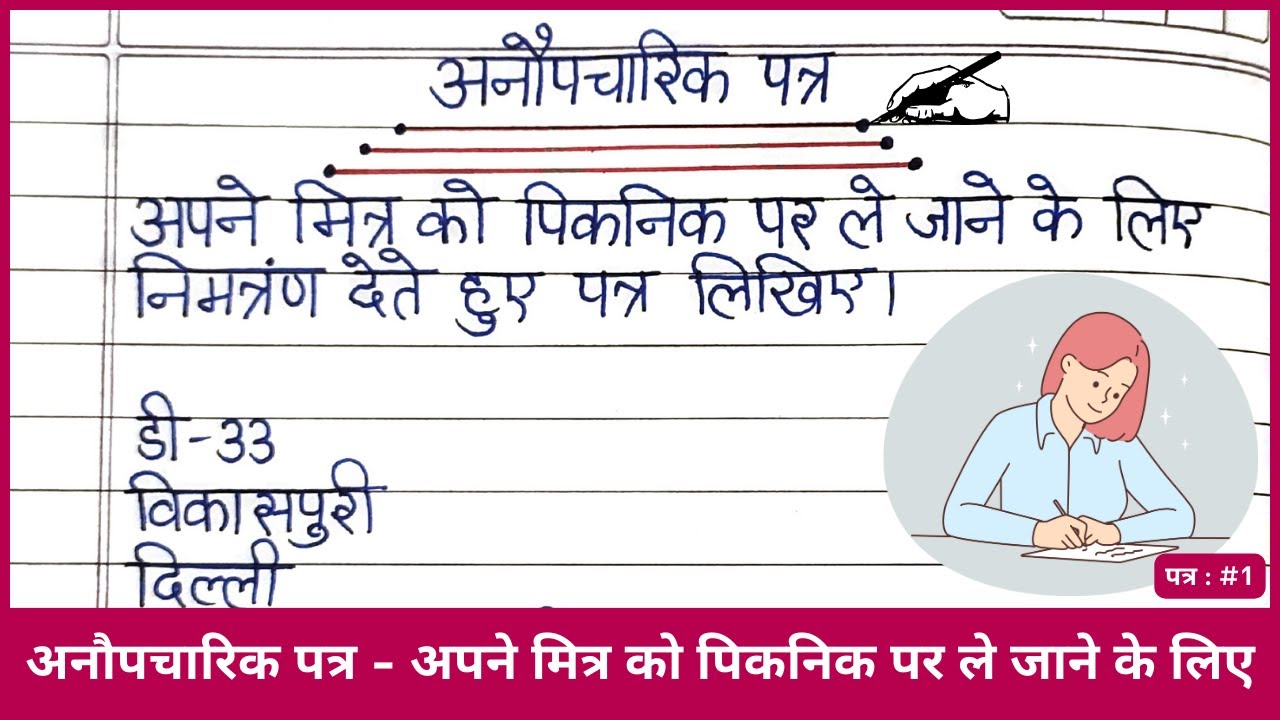 अनौपचारिक पत्र
अपने मित्र को पिकनिक पर ले जाने के लिए
निमत्रंण देते हुए पत्र लिखिए।
डी-33
विकासपुरी
दिल्ली
पत्र : #1
अनौपचारिक पत्र - अपने मित्र को पिकनिक पर ले जाने के लिए